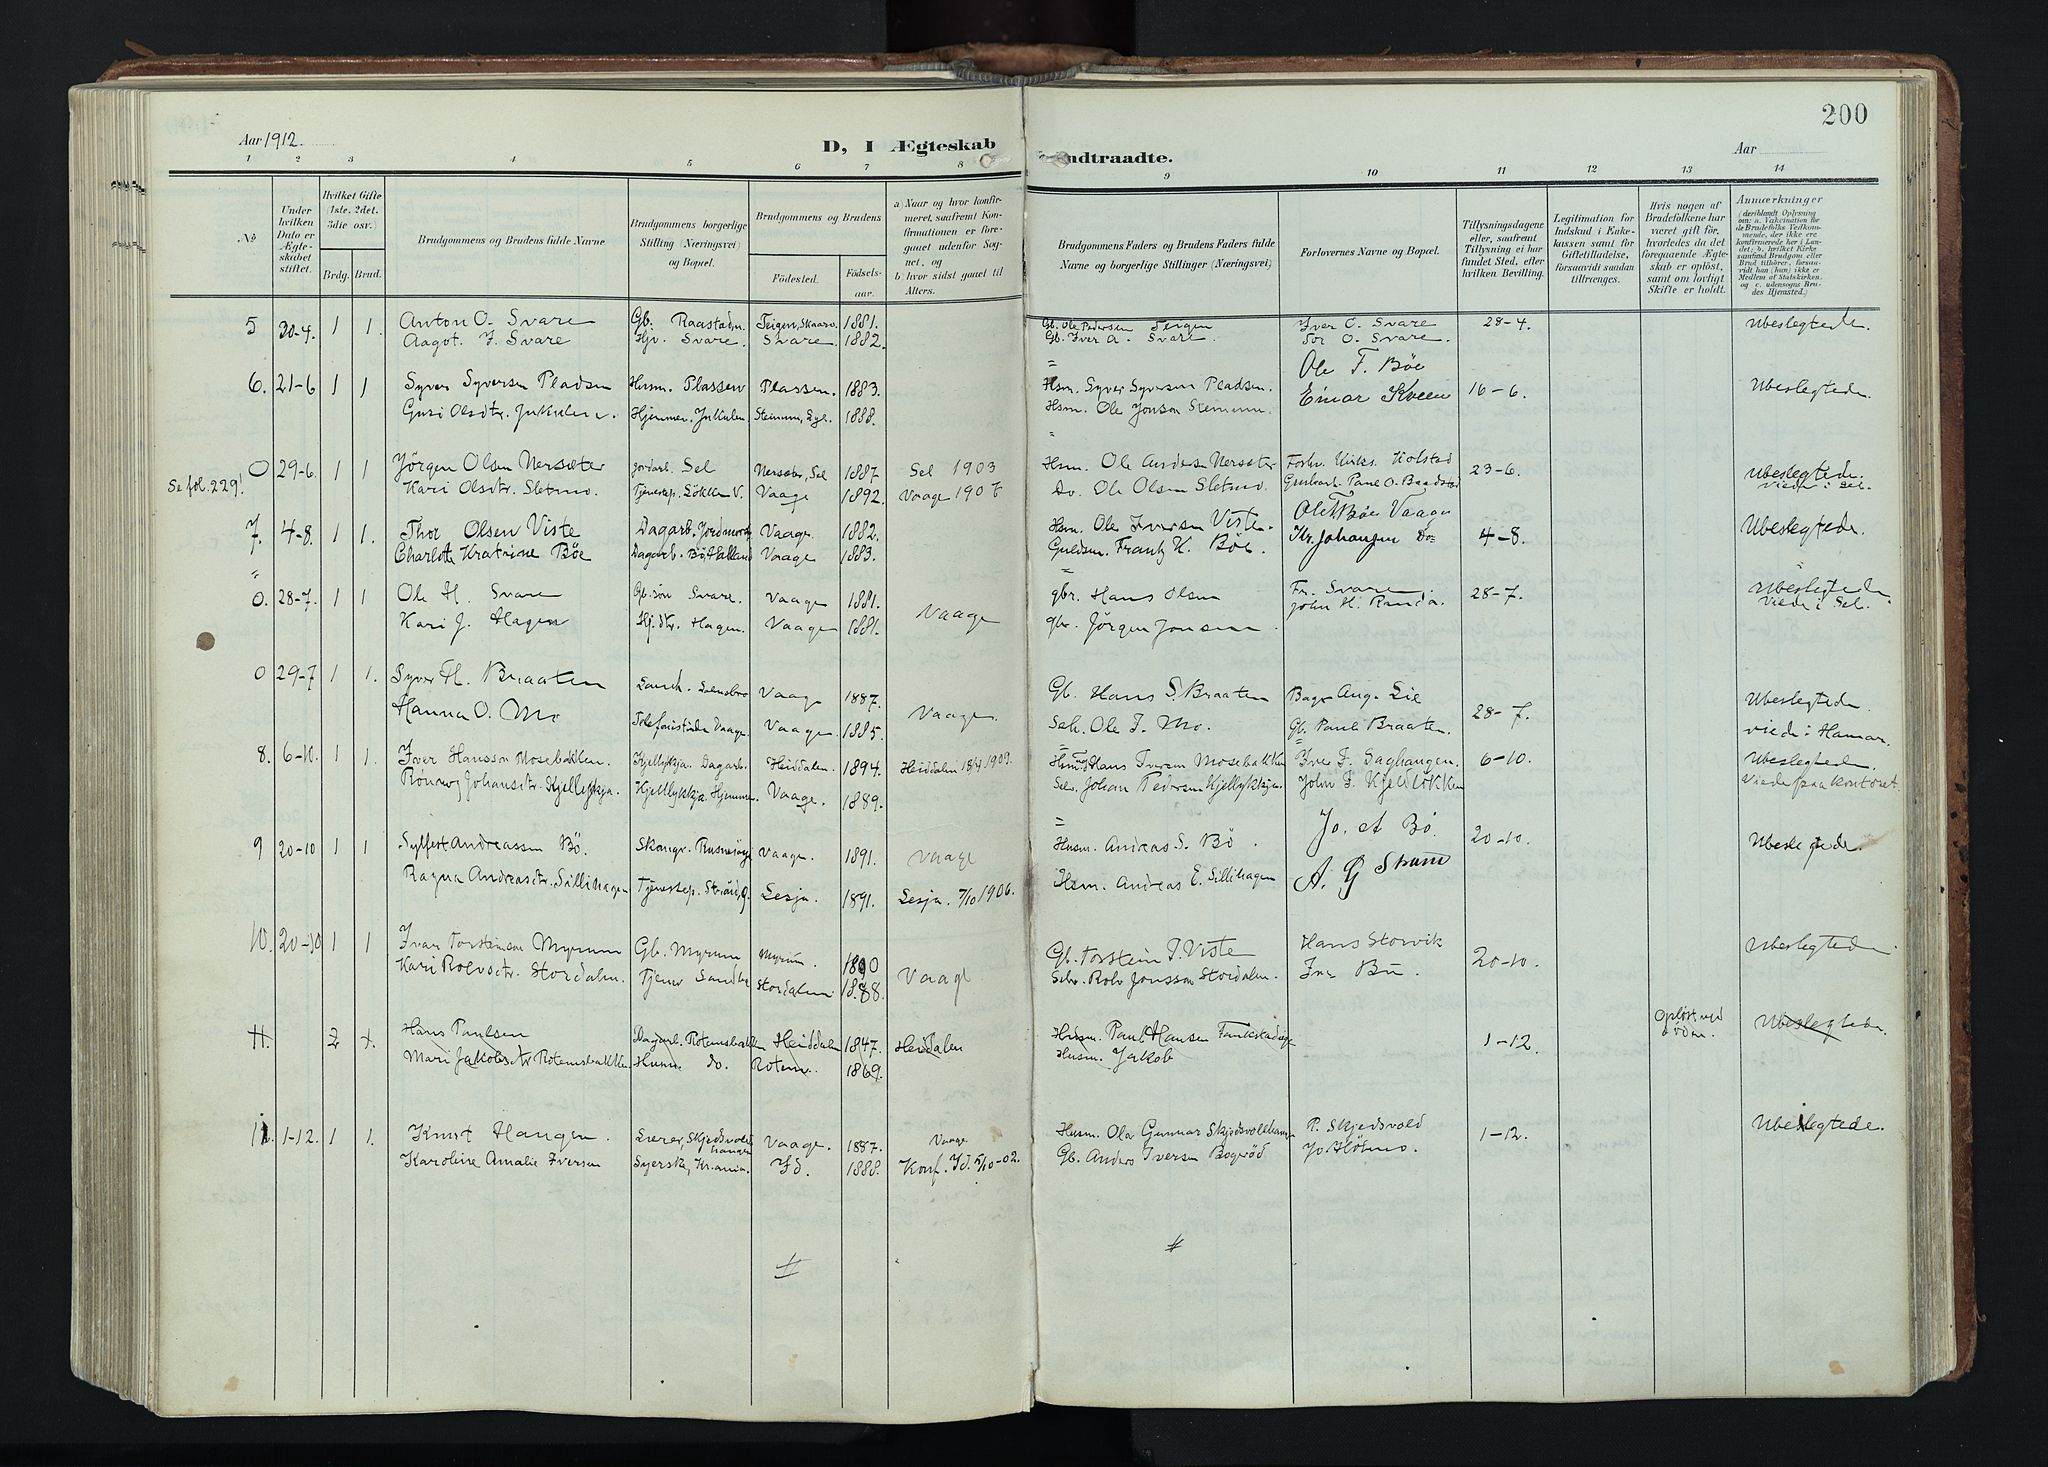 200
Aar 1912.
D, I Ægteskab
ndtraadte.
Aar
1 2 3 4 5 6 7 8 9 10 11 12 13 14
No
Under hvilken Dato er Ægteskabet stiftet.
Hvilket Gifte (1ste, 2det, 3die osv.)
Brdg. Brud.
Brudgommens og Brudens fulde Navne
Brudgommens borgerlige Stilling (Næringsvei) og Bopæl.
Brudgommens og Brudens
Fødested.
Fødsels-aar.
a) Naar og hvor konfirmeret, saafremt Konfirmationen er foregaaet udenfor Sognet, og
b) hvor sidst gaaet til Alters.
Brudgommens Faders og Brudens Faders fulde Navne og borgerlige Stillinger (Næringsvei)
Forlovernes Navne og Bopæl.
Tillysningsdagene eller, saafremt Tillysning ei har fundet Sted, efter hvilken Bevilling.
Legitimation for Indskud i Enkekassen samt for Giftetilladelse, forsaavidt saadan tiltrænges.
Hvis nogen af Brudefolkene har været gift før, hvorledes da det foregaaende Ægteskab er opløst, samt om lovligt Skifte er holdt.
Anmærkninger
5 20-4. 1 1. Anton O. Svare Gb. Raastadm. Teigen, Skaarv. 1881. Gb. Ole Pedersen Teigen Iver O. Svare 28-4. Ubeslegtede.
Aagot. I. Svare Hjv. Svare. Svare. 1882. Gb. Iver A. Svare. Tor O. Svare.
6. 21-6 1 1 Syver Syversen Pladsen Husm. Plassen Plassen. 1883. Hsm. Syver Syversen Pladsen. Ole F. Böe 16-6. Ubeslegtede
Guri Olsdtr. Jukulen. Hjemmev. Jukulen 1888. Hsm. Ole Jonson Einar Kveen
Se fol. 229!
0 29-6. 1 1 Jörgen Olsen Nersæter jordarb. Sel Nersæter, Sel 1887 Sel 1903 Hsm. Ole Andersen Nersæter Forhv. Kirks. Kolstad 23-6. Ubeslegtede.
Kari Olsdtr. Sletmo. Tjenestep. Løkken V. Vaage 1892. Vaage 1907 Do. Ole Olsen Sletmo. Gruboarb. Paul O. Baadstø viede i Sel.
7. 4-8. 1 1. Thor Olsen Viste Dagarb. Vaage. 1882. Hsm. Ole Iversen Viste. Ole F Böe Vaage 4-8. Ubeslegtede.
Charlotte Katrine Böe Dagarb. Vaage 1883. Guldsm. Frantz H. Böe. Thr. Johansen Do
0. 28-7. 1 1 Ole H. Svare Gb.søn Svare. Vaage 1881. Vaage gbr. Hans Olsen Fr. Svare. 28-7. Ubeslegtede.
Kari J. Hagen Hj.dtr. Hagen. Vaage 1881. gbr. Jörgen Jonsen. John H. Randa. Viede i Sel.
0 29-7 1 1. Syver H. Braaten Vaage 1887. Vaage. Gb. Hans S. Braaten Bager Aug. Lie 28-7. Ubeslegtede
Hanna O. Mo Telefonistinde Vaage. Vaage. 1885. Ole I. Mo. Gb. Paul Braaten. viede i Hamar.
8. 6-10. 1 1. Iver Hansson Mosebakken. Kjellykja Dagarb. Heiddalen. 1894. Heiddalen 18/4 1909. Hans Iversen Mosebakken Iver I. Daghaugen. 6-10. Ubeslegtede.
Rönnog Johansdtr. Kjellykja. Kjellykkja Hjemmev. Vaage. 1889. Selv. Johan Pedersen Kjellykkja John P. Kjellökken Viede paa kontoret.
9 20-10 1 1 Sylfest Andreassen Bö. Vaage. 1891. Vaage Husm. Andreas S. Bö. Jo. A Bö. 20-10. Ubeslegtede.
Ragna Andreasdtr. Sillihagen Tjenestep. Lesja. 1891. Lesja. 7/10 1906. Hsm. Andreas E. Sillihagen A. G Stram
10. 20-10 1 1 Ivar Torsteinson Myrum Gb. Myrum Myrum. 1890 Vaage Gb. Torstein I. Viste Hans Storvik 20-10. Ubeslegtede.
Kari Rolvsdtr. Stordalen. Tjener Sandbu Stordalen 1888. Selv. Rolv Jonsson Stordalen. Iver Bu.
11. 2 Hans Paulsen Dagarb. Rotemsbakken Heiddalen 1847. Heidalen Husm. Paul Hansen 1-12. Opløst ved døden. Ubeslegtede.
Mari Jakobsdtr Rotemsbakken Husm. do. Rotem. 1869. Husm. Jakob
11. 1-12. 1 1. Knut Haugen. Lærer, Skjedsvoldhaugen Vaage. 1887. Vaage Husm. Ola Gunnar Skjedsvoldhaugen P. Skjedsvold 1-12. Ubeslegtede.
Karoline Amalie Iversen Syersk, Kr.ania. Id. 1888. Konf. Id. 5/10-02. Gb. Anders Iversen Bogerød Jo Holmo.